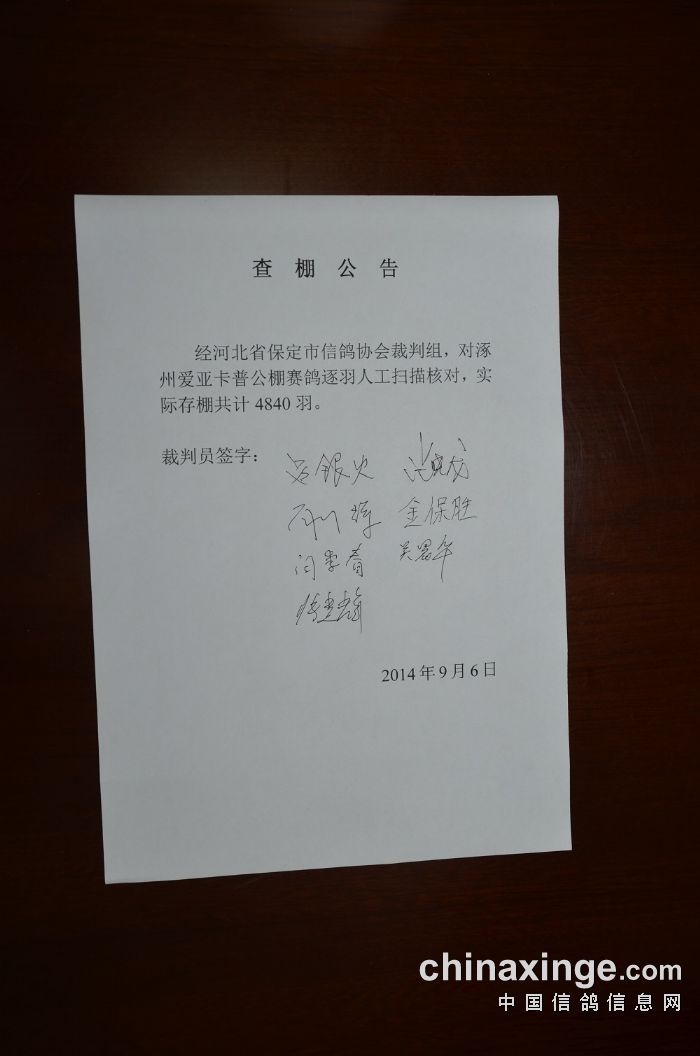 查棚公告
经河北省保定市信鸽协会裁判组，对涿
州爱亚卡普公棚赛鸽逐羽人工扫描核对，实
际存棚共计 4840 羽。
裁判员签字：
银火
金保胜
闫李春
2014 年 9 月 6 日
chinaxinge.com
中国信鸽信息网